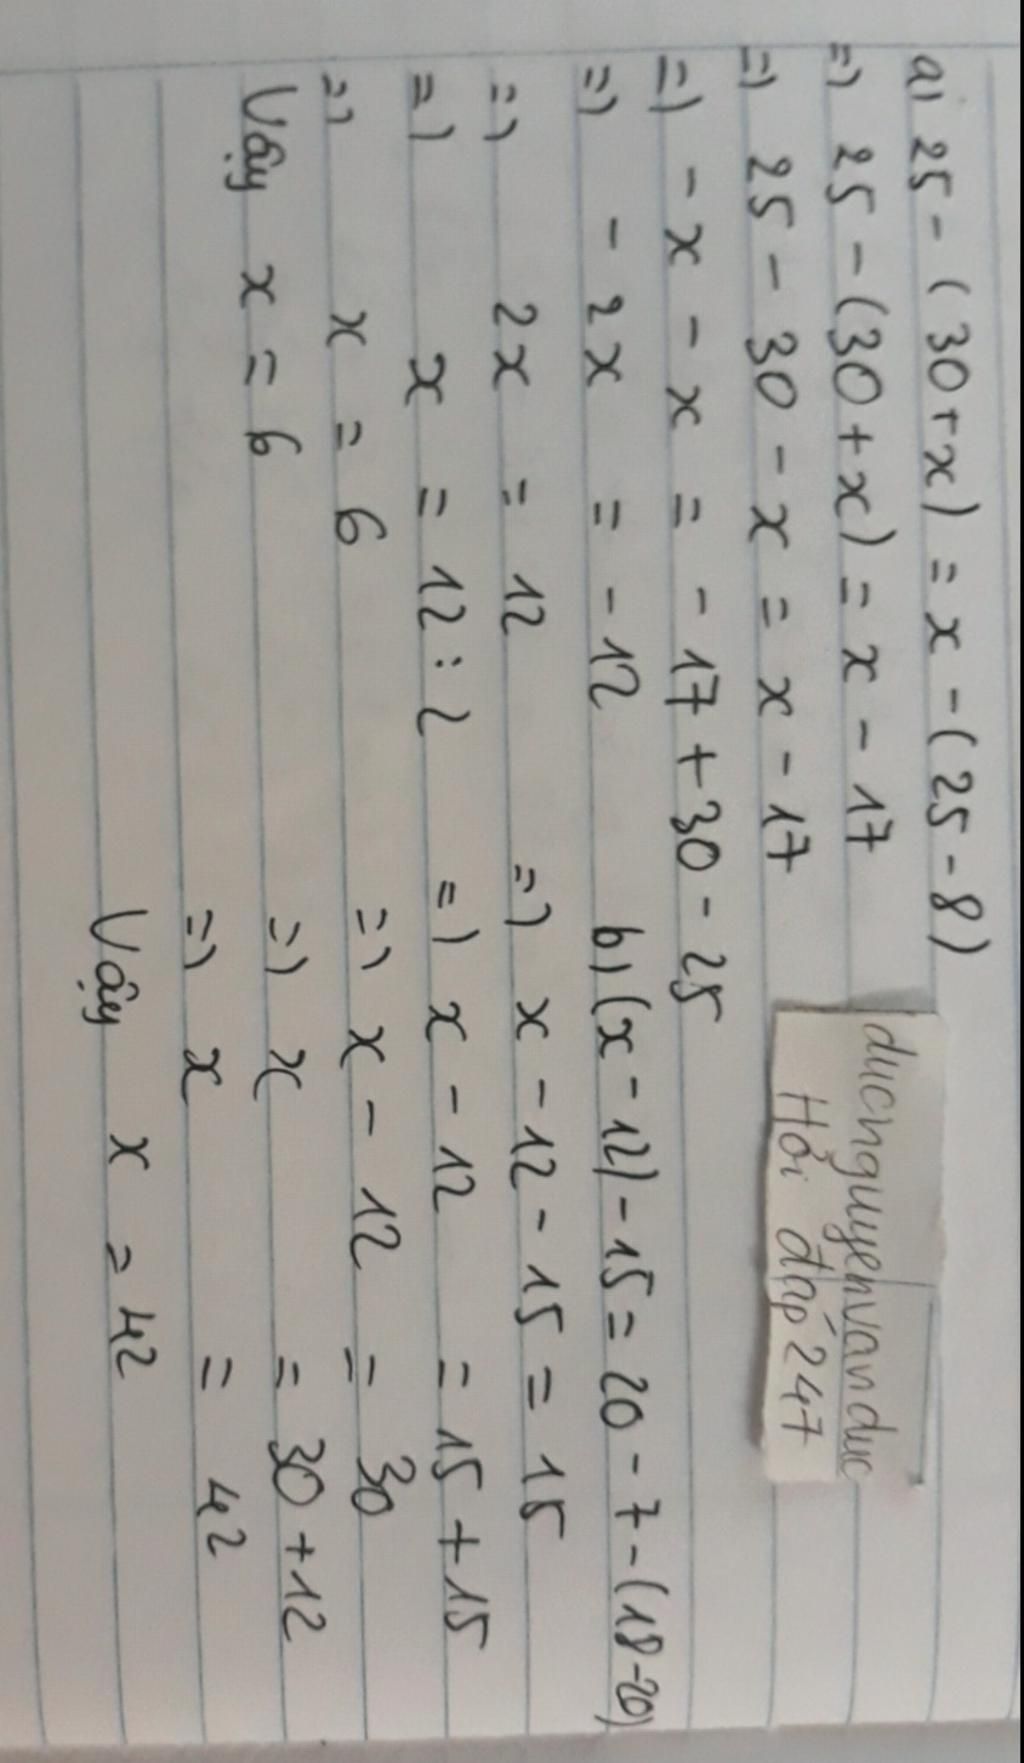 a) 25 - (30 + x) = x - (25 - 8)
=) 25 - (30 + x) = x - 17
=) 25 - 30 - x = x - 17
=) - x - x = - 17 + 30 - 25
=) - 2x = - 12
=) 2x = 12
=) x = 12 : 2
=) x = 6
Vậy x = 6
b) (x - 12) - 15 = 20 - 7 - (18 - 20)
=) x - 12 - 15 = 15
=) x - 12 = 15 + 15
=) x - 12 = 30
=) x = 30 + 12
=) x = 42
Vậy x = 42
ducnguyenvanduc
Hỏi đáp 247